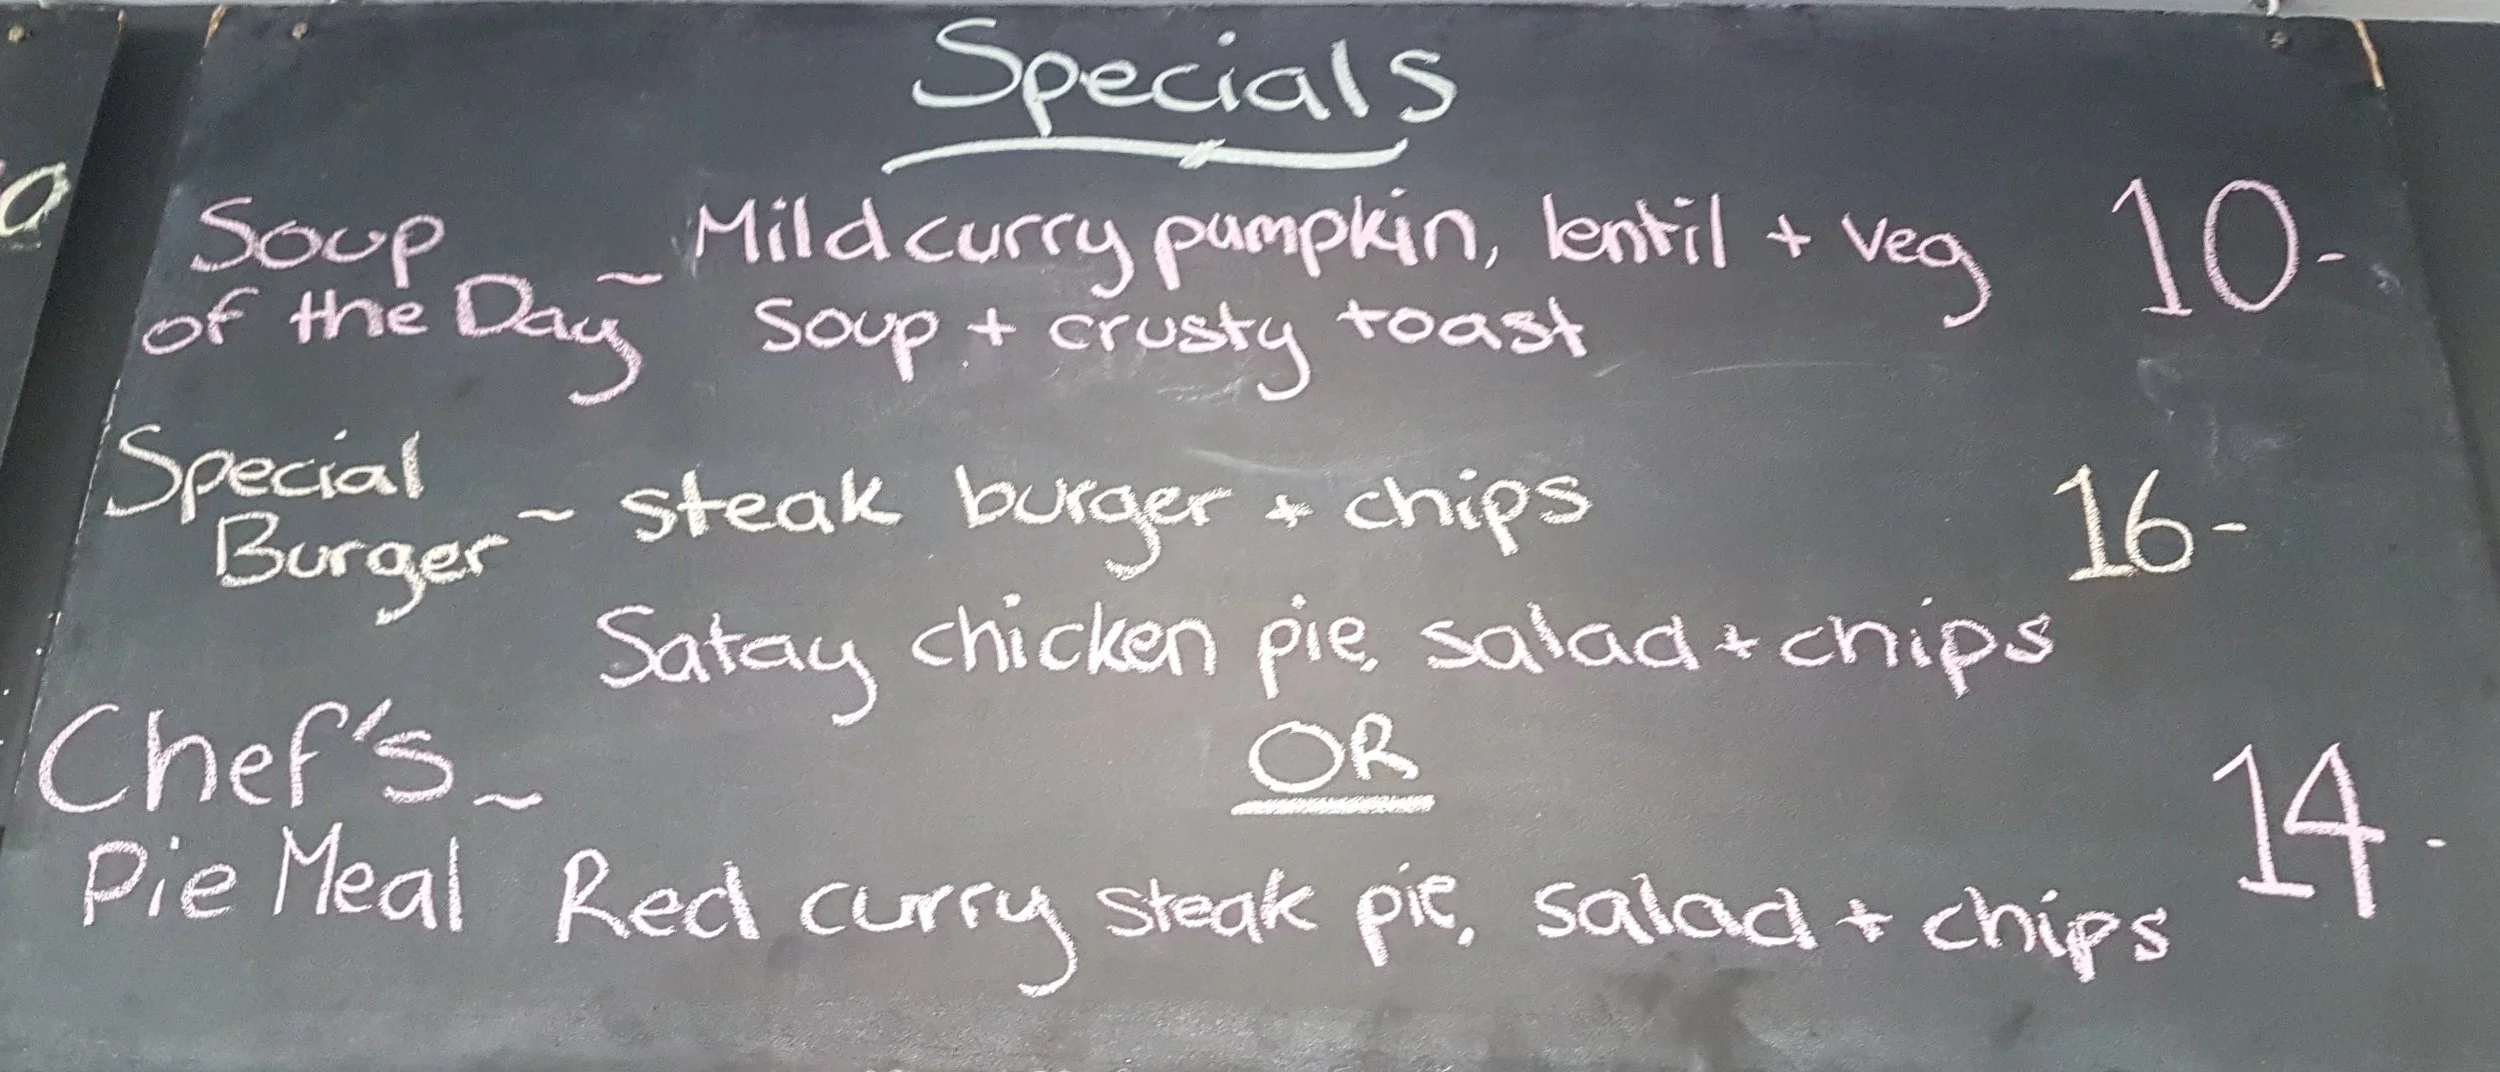 Specials
Soup of the Day ~ Mild curry pumpkin, lentil + veg 10-
Soup + crusty toast
Special Burger ~ steak burger + chips 16-
Satay chicken pie, salad + chips
Chef's ~ OR 14-
Pie Meal Red curry steak pie, salad + chips